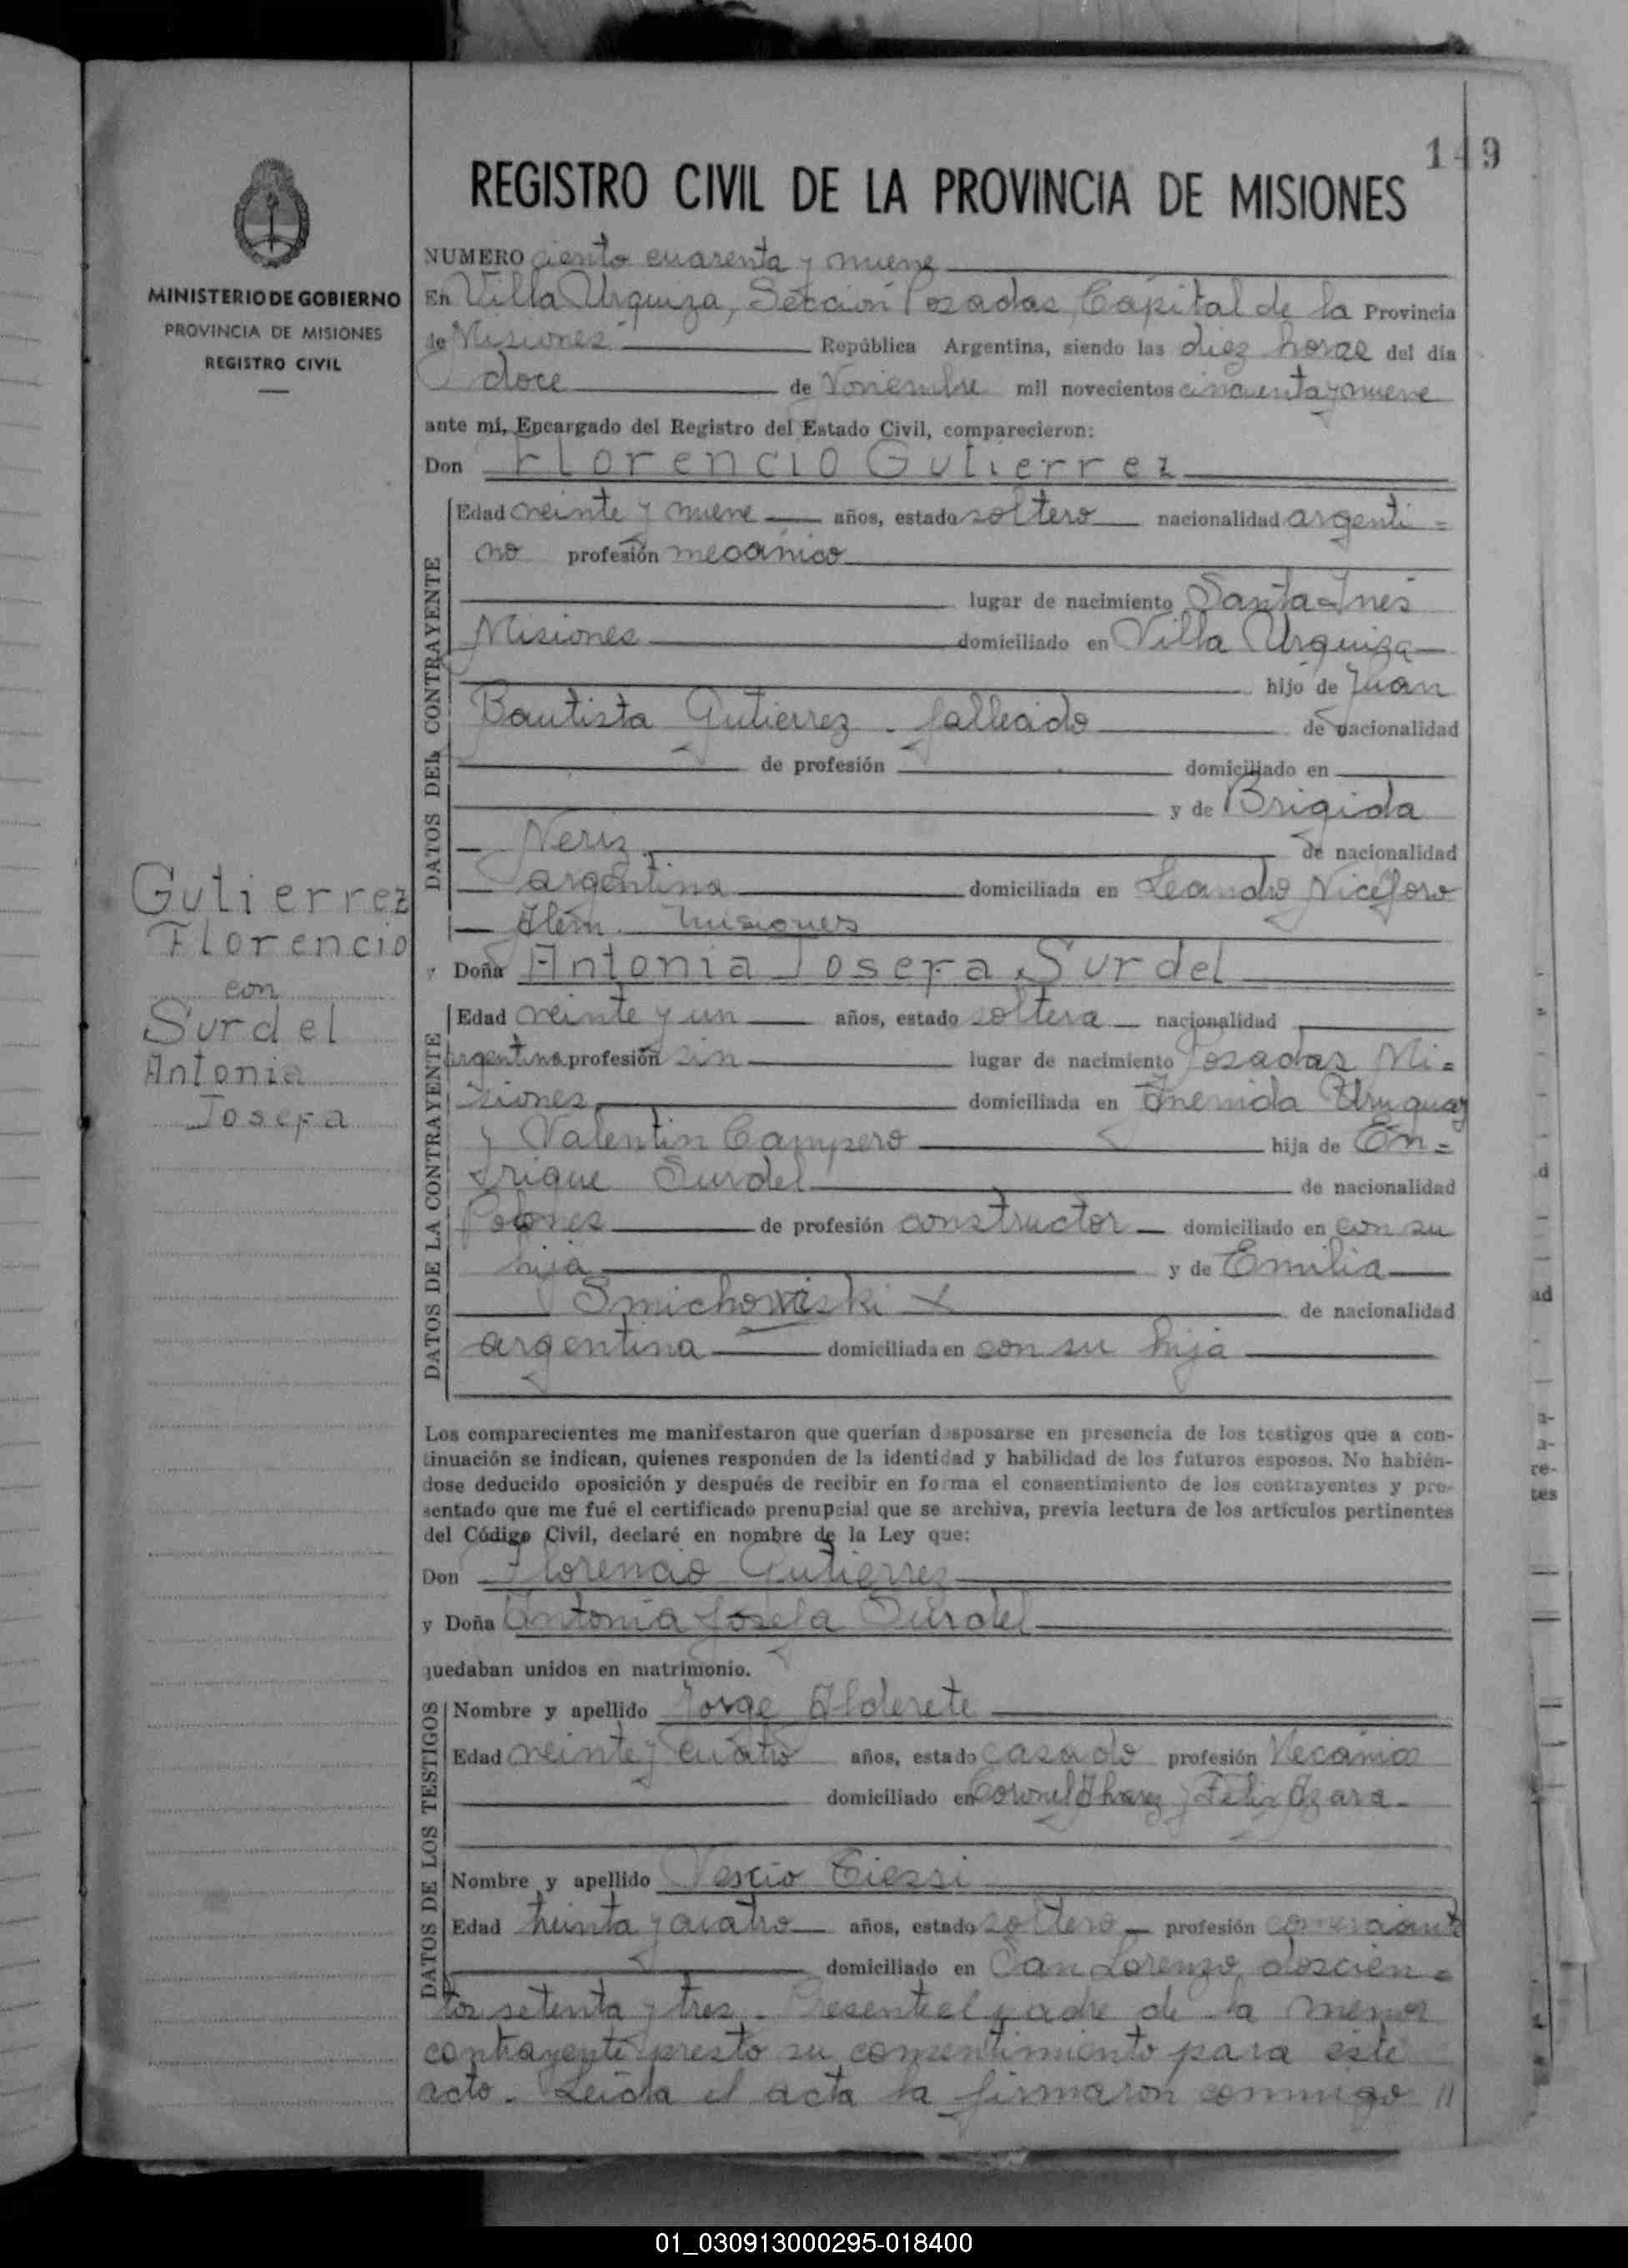 149
REGISTRO CIVIL DE LA PROVINCIA DE MISIONES
MINISTERIO DE GOBIERNO
PROVINCIA DE MISIONES
REGISTRO CIVIL
Gutierrez
Florencio
con
Surdel
Antonia
Josefa
NUMERO ciento cuarenta y nueve
En Villa Urquiza, Sección Posadas, Capital de la Provincia
de Misiones República Argentina, siendo las diez horas del día
doce de Noviembre mil novecientos cincuenta y nueve
ante mí, Encargado del Registro del Estado Civil, comparecieron:
Don Florencio Gutierrez
DATOS DEL CONTRAYENTE
Edad veinte y nueve años, estado soltero nacionalidad argenti=
no profesión mecánico
lugar de nacimiento Santa Inés
Misiones domiciliado en Villa Urquiza
hijo de Juan
Bautista Gutierrez - fallecido de nacionalidad
de profesión domiciliado en
y de Brigida
Neriz de nacionalidad
argentina domiciliada en Leandro Nicéforo
Alem. Misiones
y Doña Antonia Josefa Surdel
DATOS DE LA CONTRAYENTE
Edad veinte y un años, estado soltera nacionalidad
argentina profesión sin lugar de nacimiento Posadas Mi=
siones domiciliada en Avenida Uruguay
y Valentin Campero hija de En=
rique Surdel de nacionalidad
Polones de profesión constructor domiciliado en con su
hija y de Emilia
Smichowiski x de nacionalidad
argentina domiciliada en con su hija
Los comparecientes me manifestaron que querían desposarse en presencia de los testigos que a con-
tinuación se indican, quienes responden de la identidad y habilidad de los futuros esposos. No habién-
dose deducido oposición y después de recibir en forma el consentimiento de los contrayentes y pre-
sentado que me fué el certificado prenupcial que se archiva, previa lectura de los artículos pertinentes
del Código Civil, declaré en nombre de la Ley que:
Don Florencio Gutierrez
y Doña Antonia Josefa Surdel
quedaban unidos en matrimonio.
DATOS DE LOS TESTIGOS
Nombre y apellido Jorge Alderete
Edad veinte y cuatro años, estado casado profesión Mecánico
domiciliado en Coronel Alvarez y Felix Azara.
Nombre y apellido Tiessi
Edad treinta y cuatro años, estado soltero profesión comerciante
domiciliado en San Lorenzo doscien=
tos setenta y tres. Presente el padre de la menor
contrayente presto su consentimiento para este
acto. Leida el acta la firmaron conmigo //
01_030913000295-018400